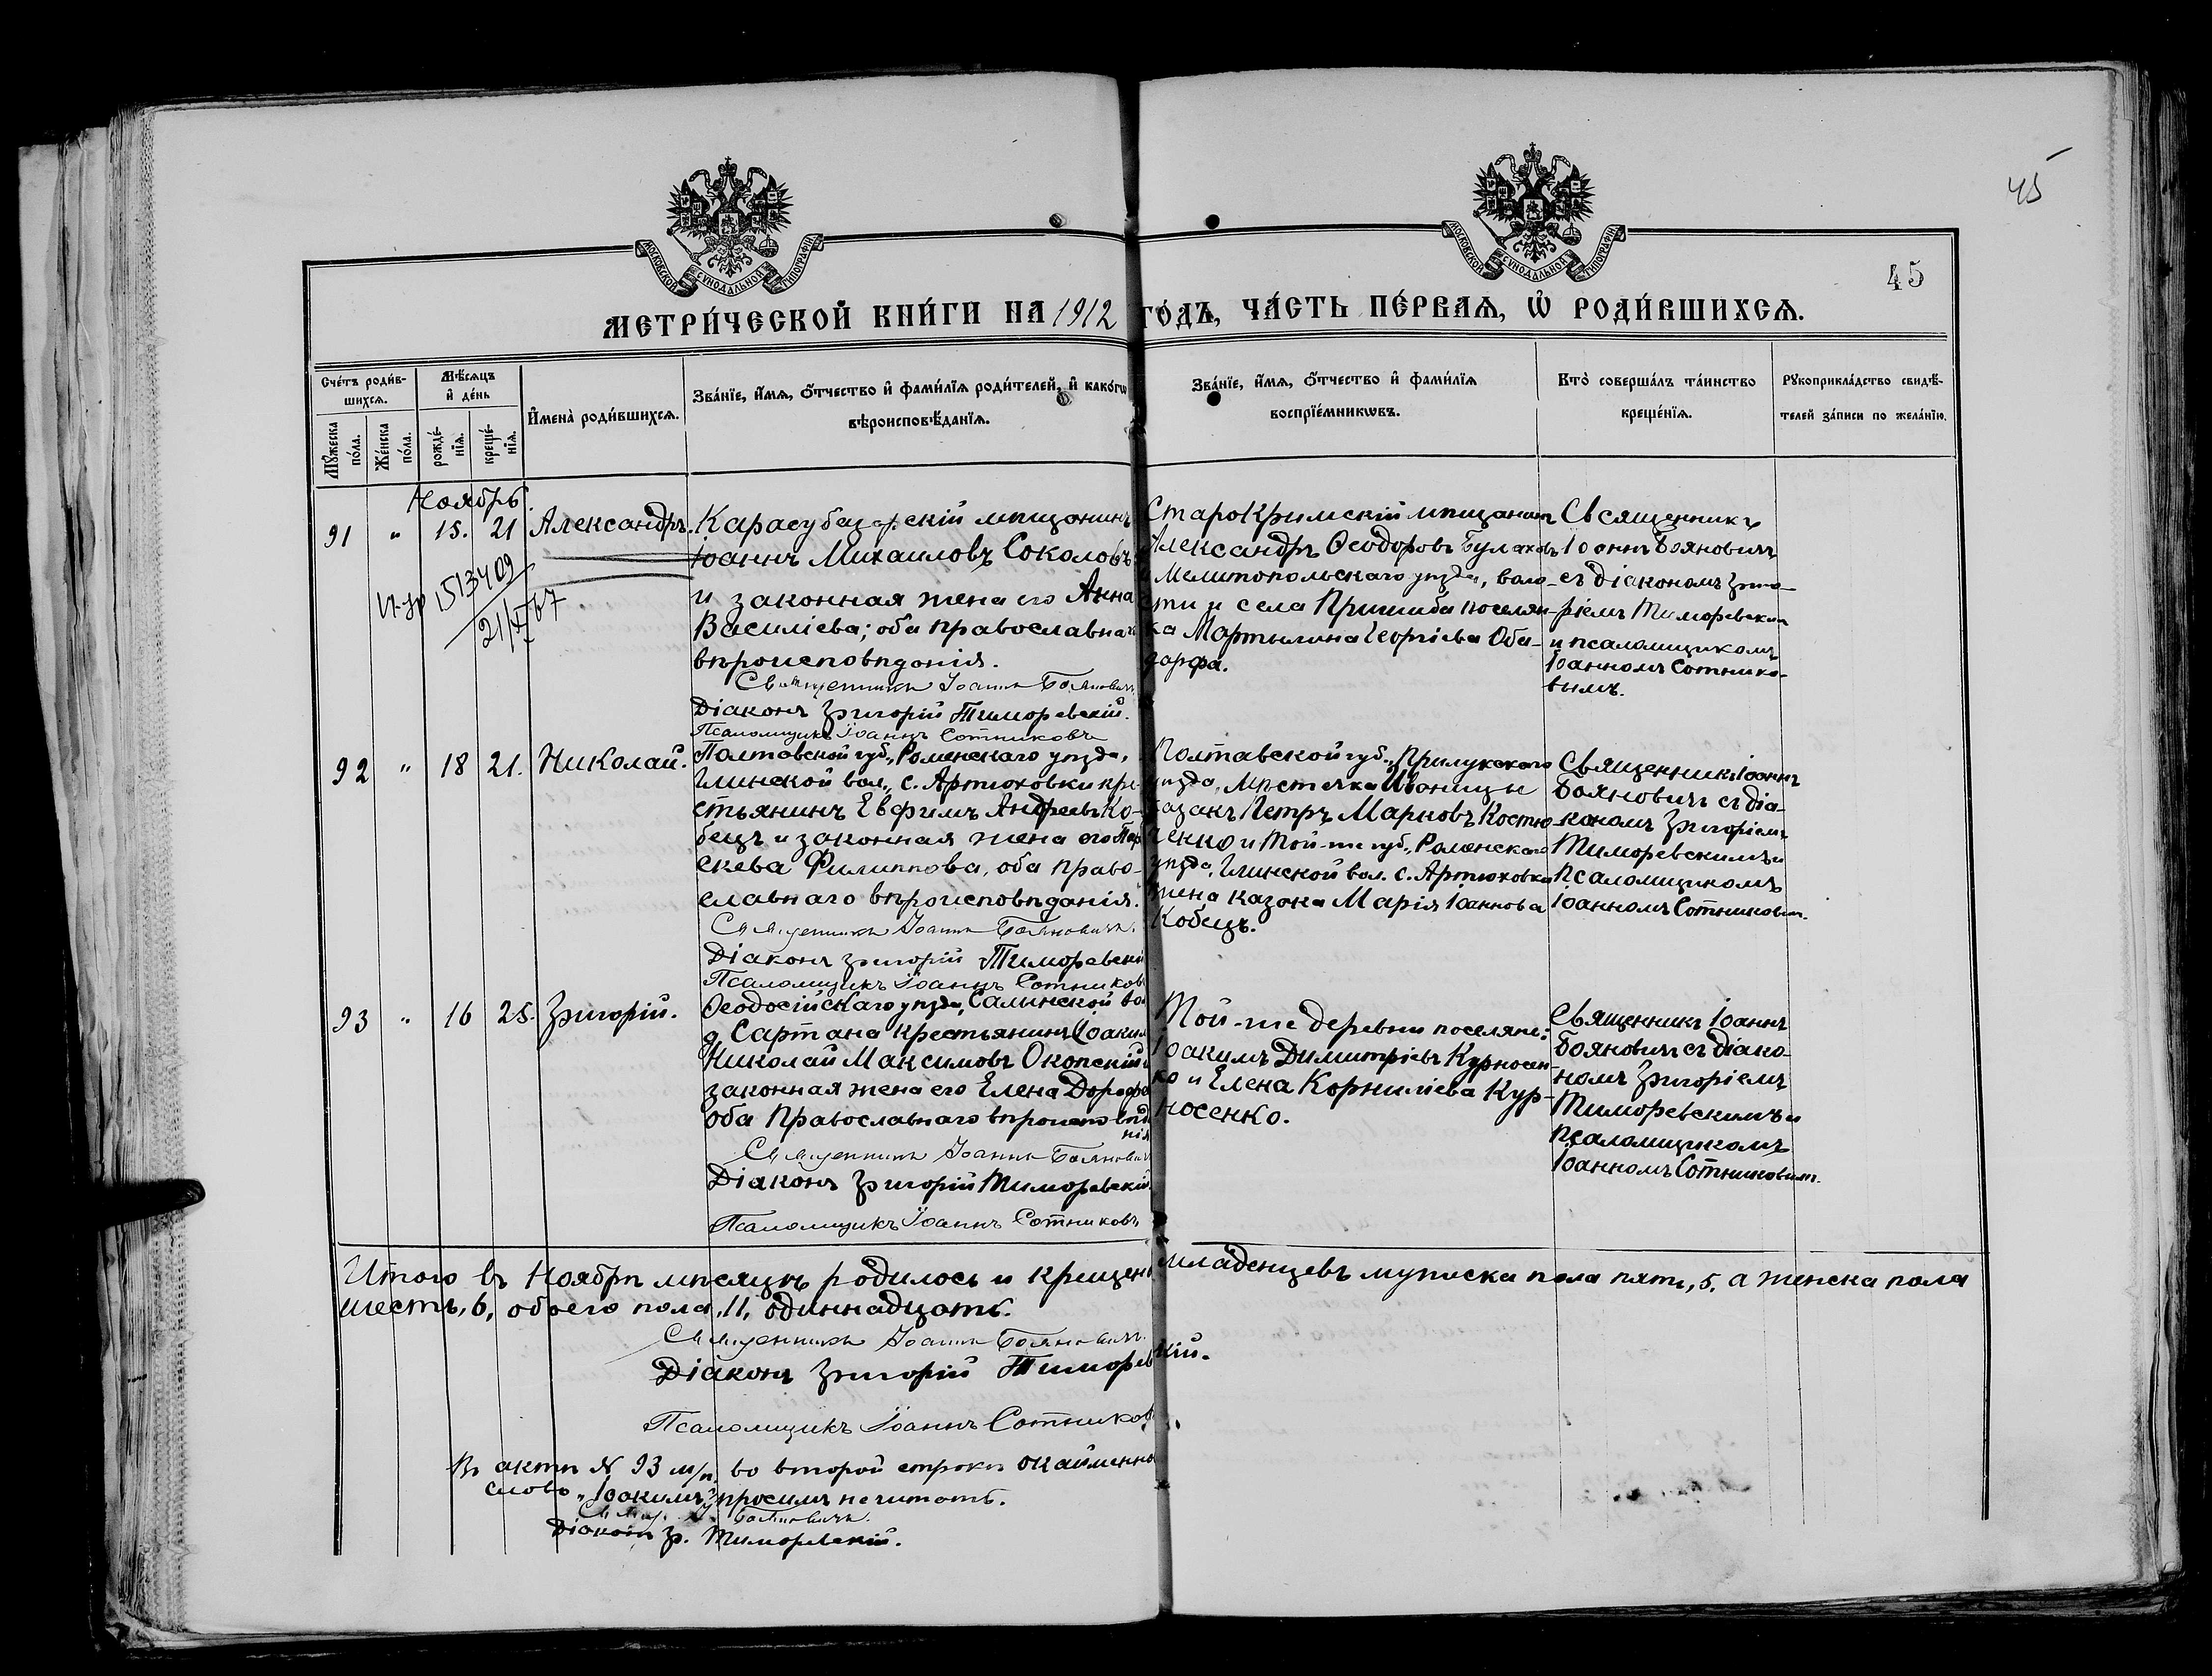 45
45
МОСКОВСКОЙ СѴНОДАЛЬНОЙ ТИПОГРАФІИ
МОСКОВСКОЙ СѴНОДАЛЬНОЙ ТИПОГРАФІИ
МЕТРИ́ЧЕСКОЙ КНИ́ГИ НА 1912 ГО́ДЪ, ЧА́СТЬ ПЕ́РВАѦ, Ѡ҆ РОДИ́ВШИХСѦ.
Сче́тъ роди́в-
шихсѧ.
Мꙋ́жеска
по́ла.
Же́нска
по́ла.
Мѣ́сѧцъ
и҆ де́нь
рожде́-
нїѧ.
креще́-
нїѧ.
И҆мена̀ роди́вшихсѧ.
Зва́нїе, и҆́мѧ, ѻ҆́тчество и҆ фами́лїѧ роди́телей, и҆ како́гѡ
вѣроисповѣ́данїѧ.
Зва́нїе, и҆́мѧ, ѻ҆́тчество и҆ фами́лїѧ
воспрїе́мникѡвъ.
Кто̀ соверша́лъ та́инство
креще́нїѧ.
Рꙋкоприкла́дство свидѣ́-
телей за́писи по жела́нїю.
Ноябрь
91 " 15. 21 Александръ.
1513409
Карасубазарскій мѣщанинъ
Іоаннъ Михаиловъ Соколовъ
и законная жена его Анна
Василіева; оба православнаго
вѣроисповѣданія.
Священникъ Іоаннъ Бояновичъ
Діаконъ Григорій Тиморевскій.
Псаломщикъ Іоаннъ Сотниковъ
СтароКрымскій мѣщанинъ
Александръ Ѳеодоровъ Булаховъ
и Мелитопольскаго уѣзда, воло-
сти и села Пришиба поселян-
ка Мартылина Георгіева Оба-
дарфа.
Священникъ
Іоаннъ Бояновичъ
съ діакономъ Григо-
ріемъ Тиморевским
и псаломщикомъ
Іоанномъ Сотнико-
вымъ.
92 " 18 21. Николай.
Полтавской губ., Роменскаго уѣзда,
Глинской вол., с. Артюховки кре-
стьянинъ Евфимъ Андреевъ Ко-
бецъ и законная жена его Пар
скева Филиппова, оба право-
славнаго вѣроисповѣданія.
Священникъ Іоаннъ Бояновичъ.
Діаконъ Григорій Тиморевскій
Псаломщикъ Іоаннъ Сотниковъ
Полтавской губ., Прилукскаго
уѣзда, мѣстечка Иваницы
казакъ Петръ Марковъ Костю-
ченко и той-же губ., Роменскаго
уѣзда, Глинской вол. с. Артюховки
жена казака Марія Іоаннова
Кобецъ.
Священникъ Іоаннъ
Бояновичъ съ діа-
кономъ Григоріемъ
Тиморевскимъ и
псаломщикомъ
Іоанномъ Сотниковым.
93 " 16 25. Григорій.
Ѳеодосійскаго уѣзда, Салинской вол
д. Сартана крестьянинъ (Іоакимъ
Николай Максимовъ Окопскій и
законная жена его Елена Дорофе
оба Православнаго вѣроисповѣда
нія
Священникъ Іоаннъ Бояновичъ
Діаконъ Григорій Тиморевскій.
Псаломщикъ Іоаннъ Сотниковъ
Той-же деревни поселяне:
Іоакимъ Димитріевъ Курносен-
ко и Елена Корниліева Кур-
носенко.
Священникъ Іоаннъ
Бояновичъ съ діако-
номъ Григоріемъ
Тиморевскимъ и
псаломщикомъ
Іоанномъ Сотниковым.
Итого въ Ноябрѣ мѣсяцѣ родилось и крещено младенцевъ мужеска пола пять, 5, а женска пола
шесть, 6, обоего пола, 11, одиннадцать.
Священникъ Іоаннъ Бояновичъ.
Діаконъ Григорій Тиморевскій.
Псаломщикъ Іоаннъ Сотниковъ.
Въ актѣ № 93 м/п. во второй строкѣ окаймленно
слово „Іоакимъ" просимъ не читать.
Свящ. І. Бояновичъ.
Діаконъ Гр. Тиморевскій.